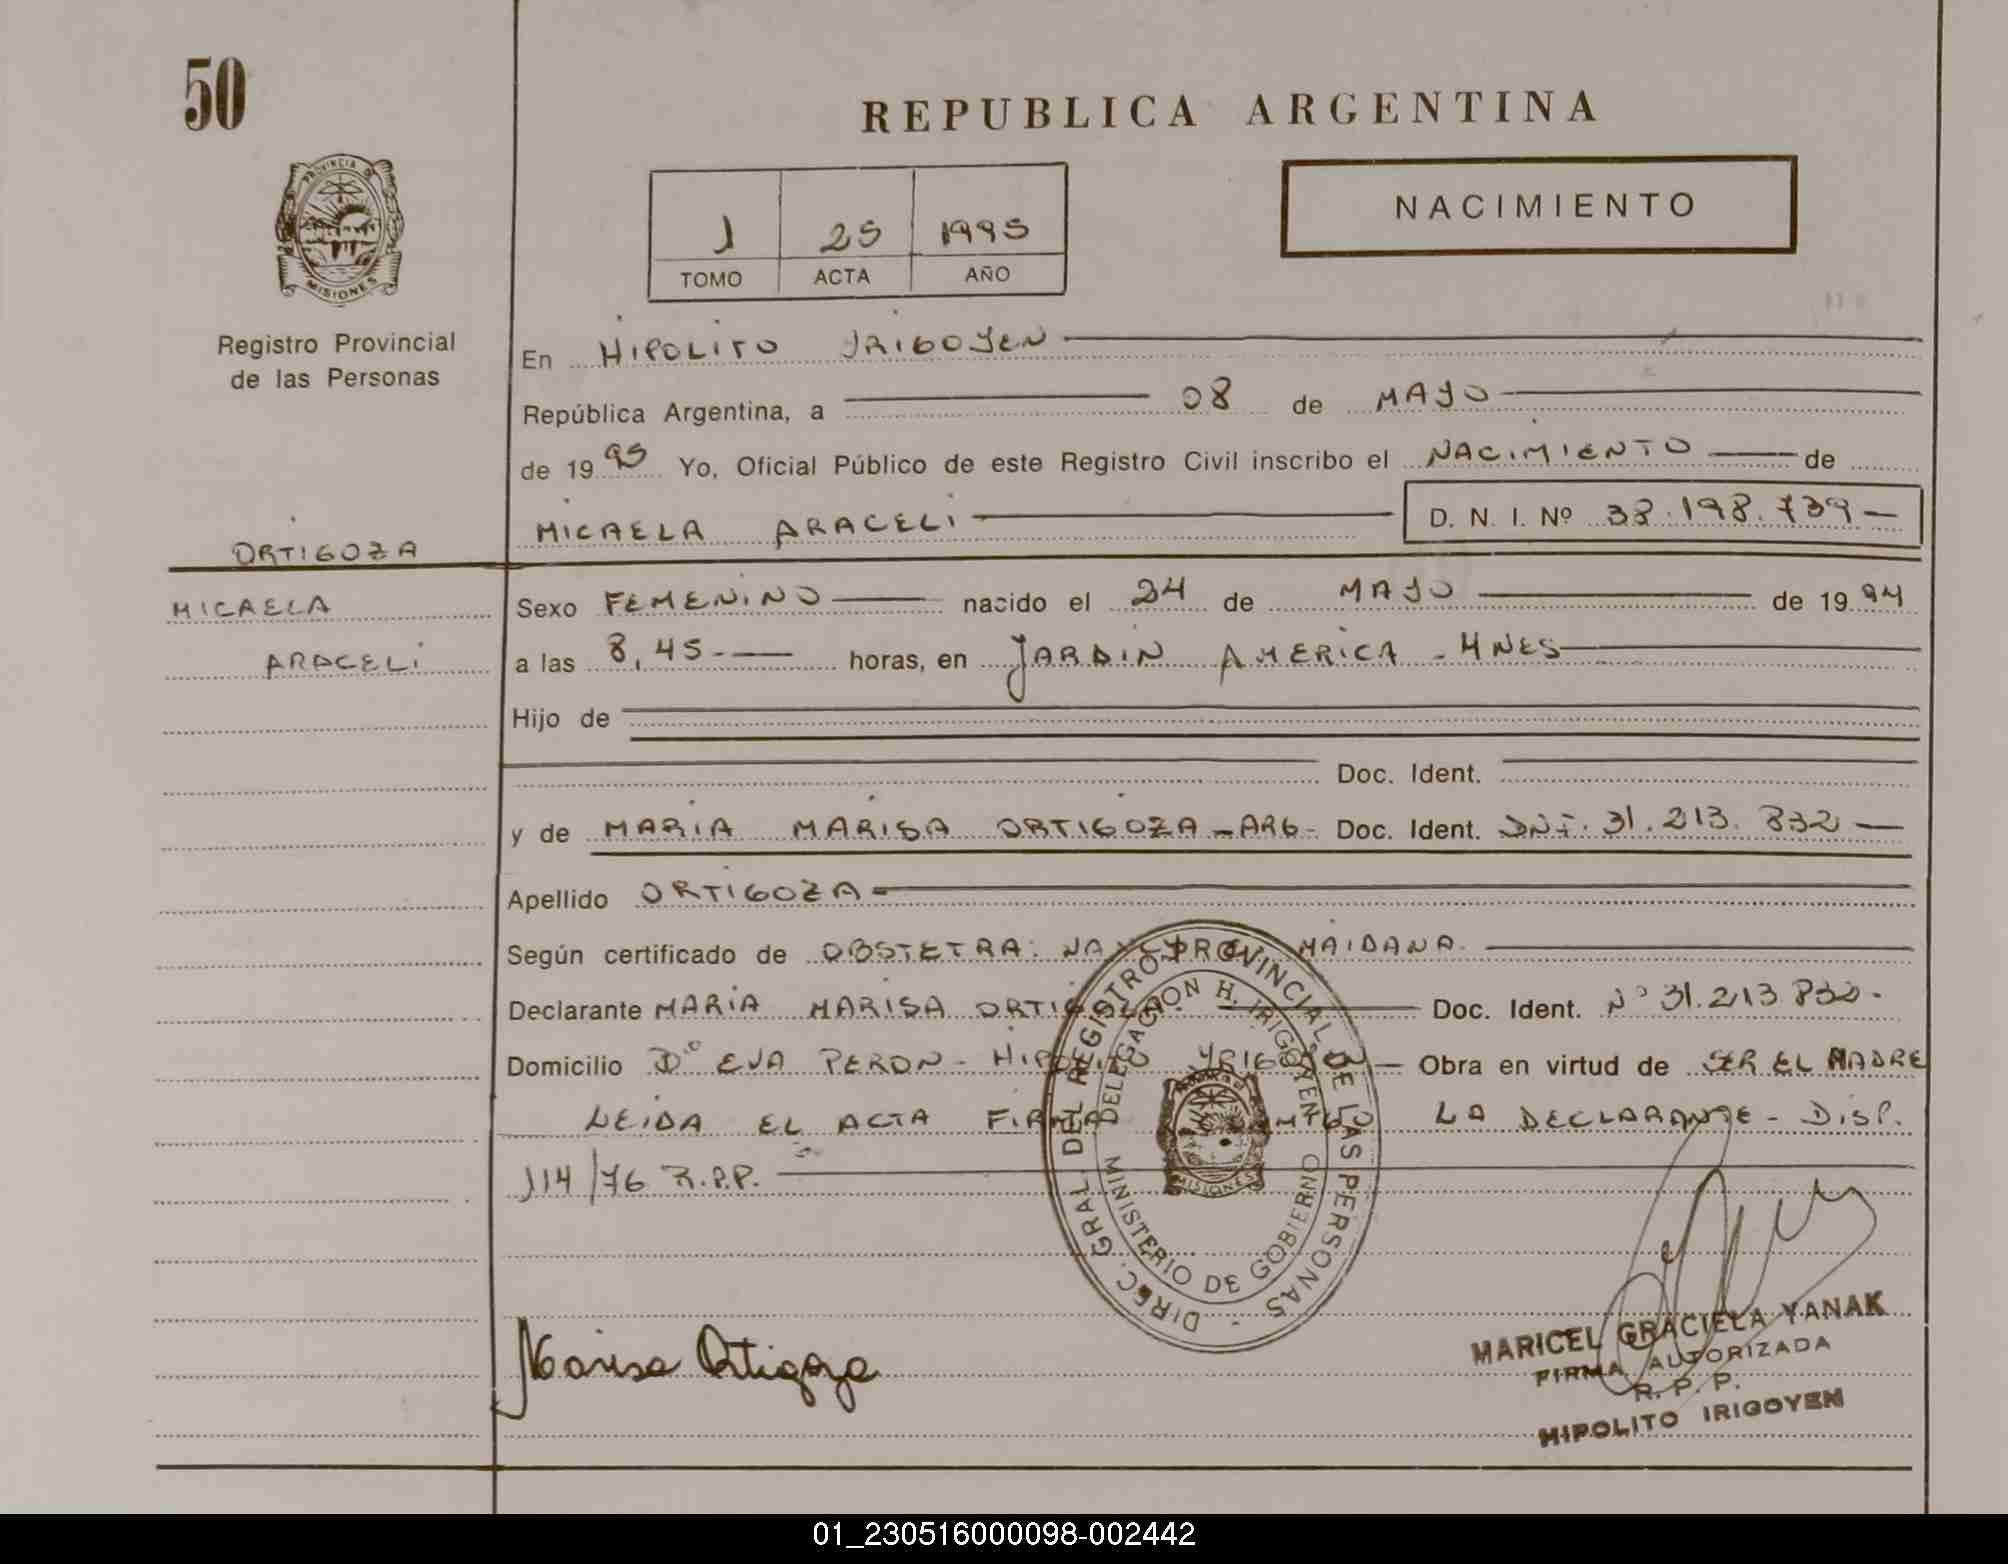 50
REPUBLICA ARGENTINA
PROVINCIA DE
MISIONES
1 25 1995
TOMO ACTA AÑO
NACIMIENTO
Registro Provincial
de las Personas
En HIPOLITO IRIGOYEN
República Argentina, a 08 de MAYO
de 19 95 Yo, Oficial Público de este Registro Civil inscribo el NACIMIENTO de
MICAELA ARACELI D. N. I. Nº 38.198.739
ORTIGOZA
MICAELA
ARACELI
Sexo FEMENINO nacido el 24 de MAYO de 19 94
a las 8,45 horas, en JARDIN AMERICA - MNES
Hijo de
Doc. Ident.
y de MARIA MARISA ORTIGOZA - ARG - Doc. Ident. DNI. 31.213.832
Apellido ORTIGOZA
Según certificado de OBSTETRA: MAIDANA.
Declarante MARIA MARISA ORTIGOZA Doc. Ident. Nº 31.213.832.
Domicilio Bº EVA PERON - HIPOLITO YRIGOYEN Obra en virtud de SER EL MADRE
LEIDA EL ACTA FIRMA LA DECLARANTE - DISP.
114/76 R.P.P.
DIREC. GRAL. DEL REGISTRO PROVINCIAL DE LAS PERSONAS
DELEGACION H. IRIGOYEN
MINISTERIO DE GOBIERNO
MISIONES
Marisa Ortigoza
MARICEL GRACIELA YANAK
FIRMA AUTORIZADA
R. P. P.
HIPOLITO IRIGOYEN
01_230516000098-002442